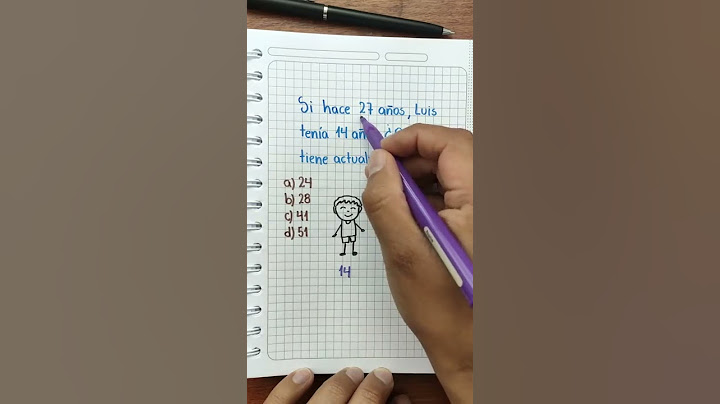 Si hace 27 años, Luis
tenía 14
tiene
a) 24
b) 28
c) 41
d) 51
14